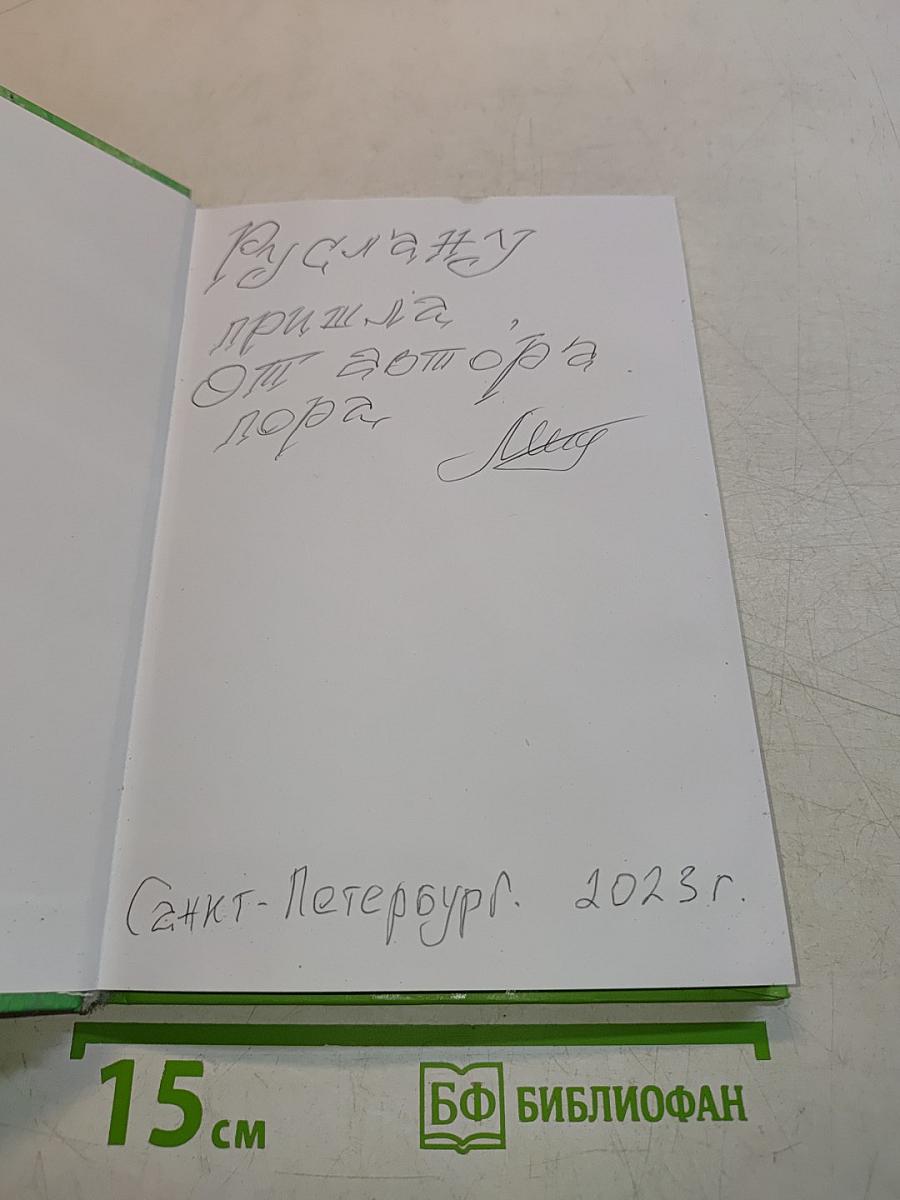 Руслану
пришла,
от автора
пора
Санкт-Петербург. 2023 г.
15 см
БФ БИБЛИОФАН